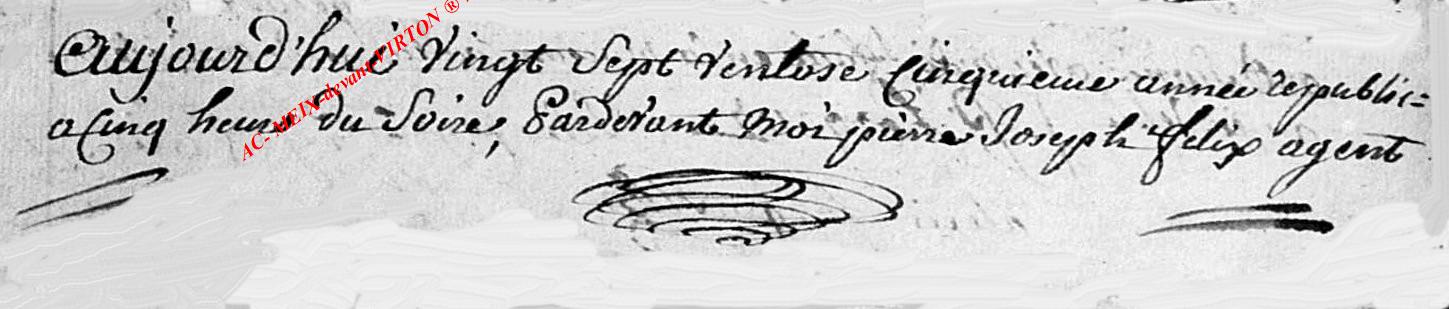 Aujourd'hui vingt Sept Ventose Cinquieme année republic=
a Cinq heure du Soire, Pardevant Moi pierre Joseph felix agent
AC-MEIX-devant-VIRTON ®